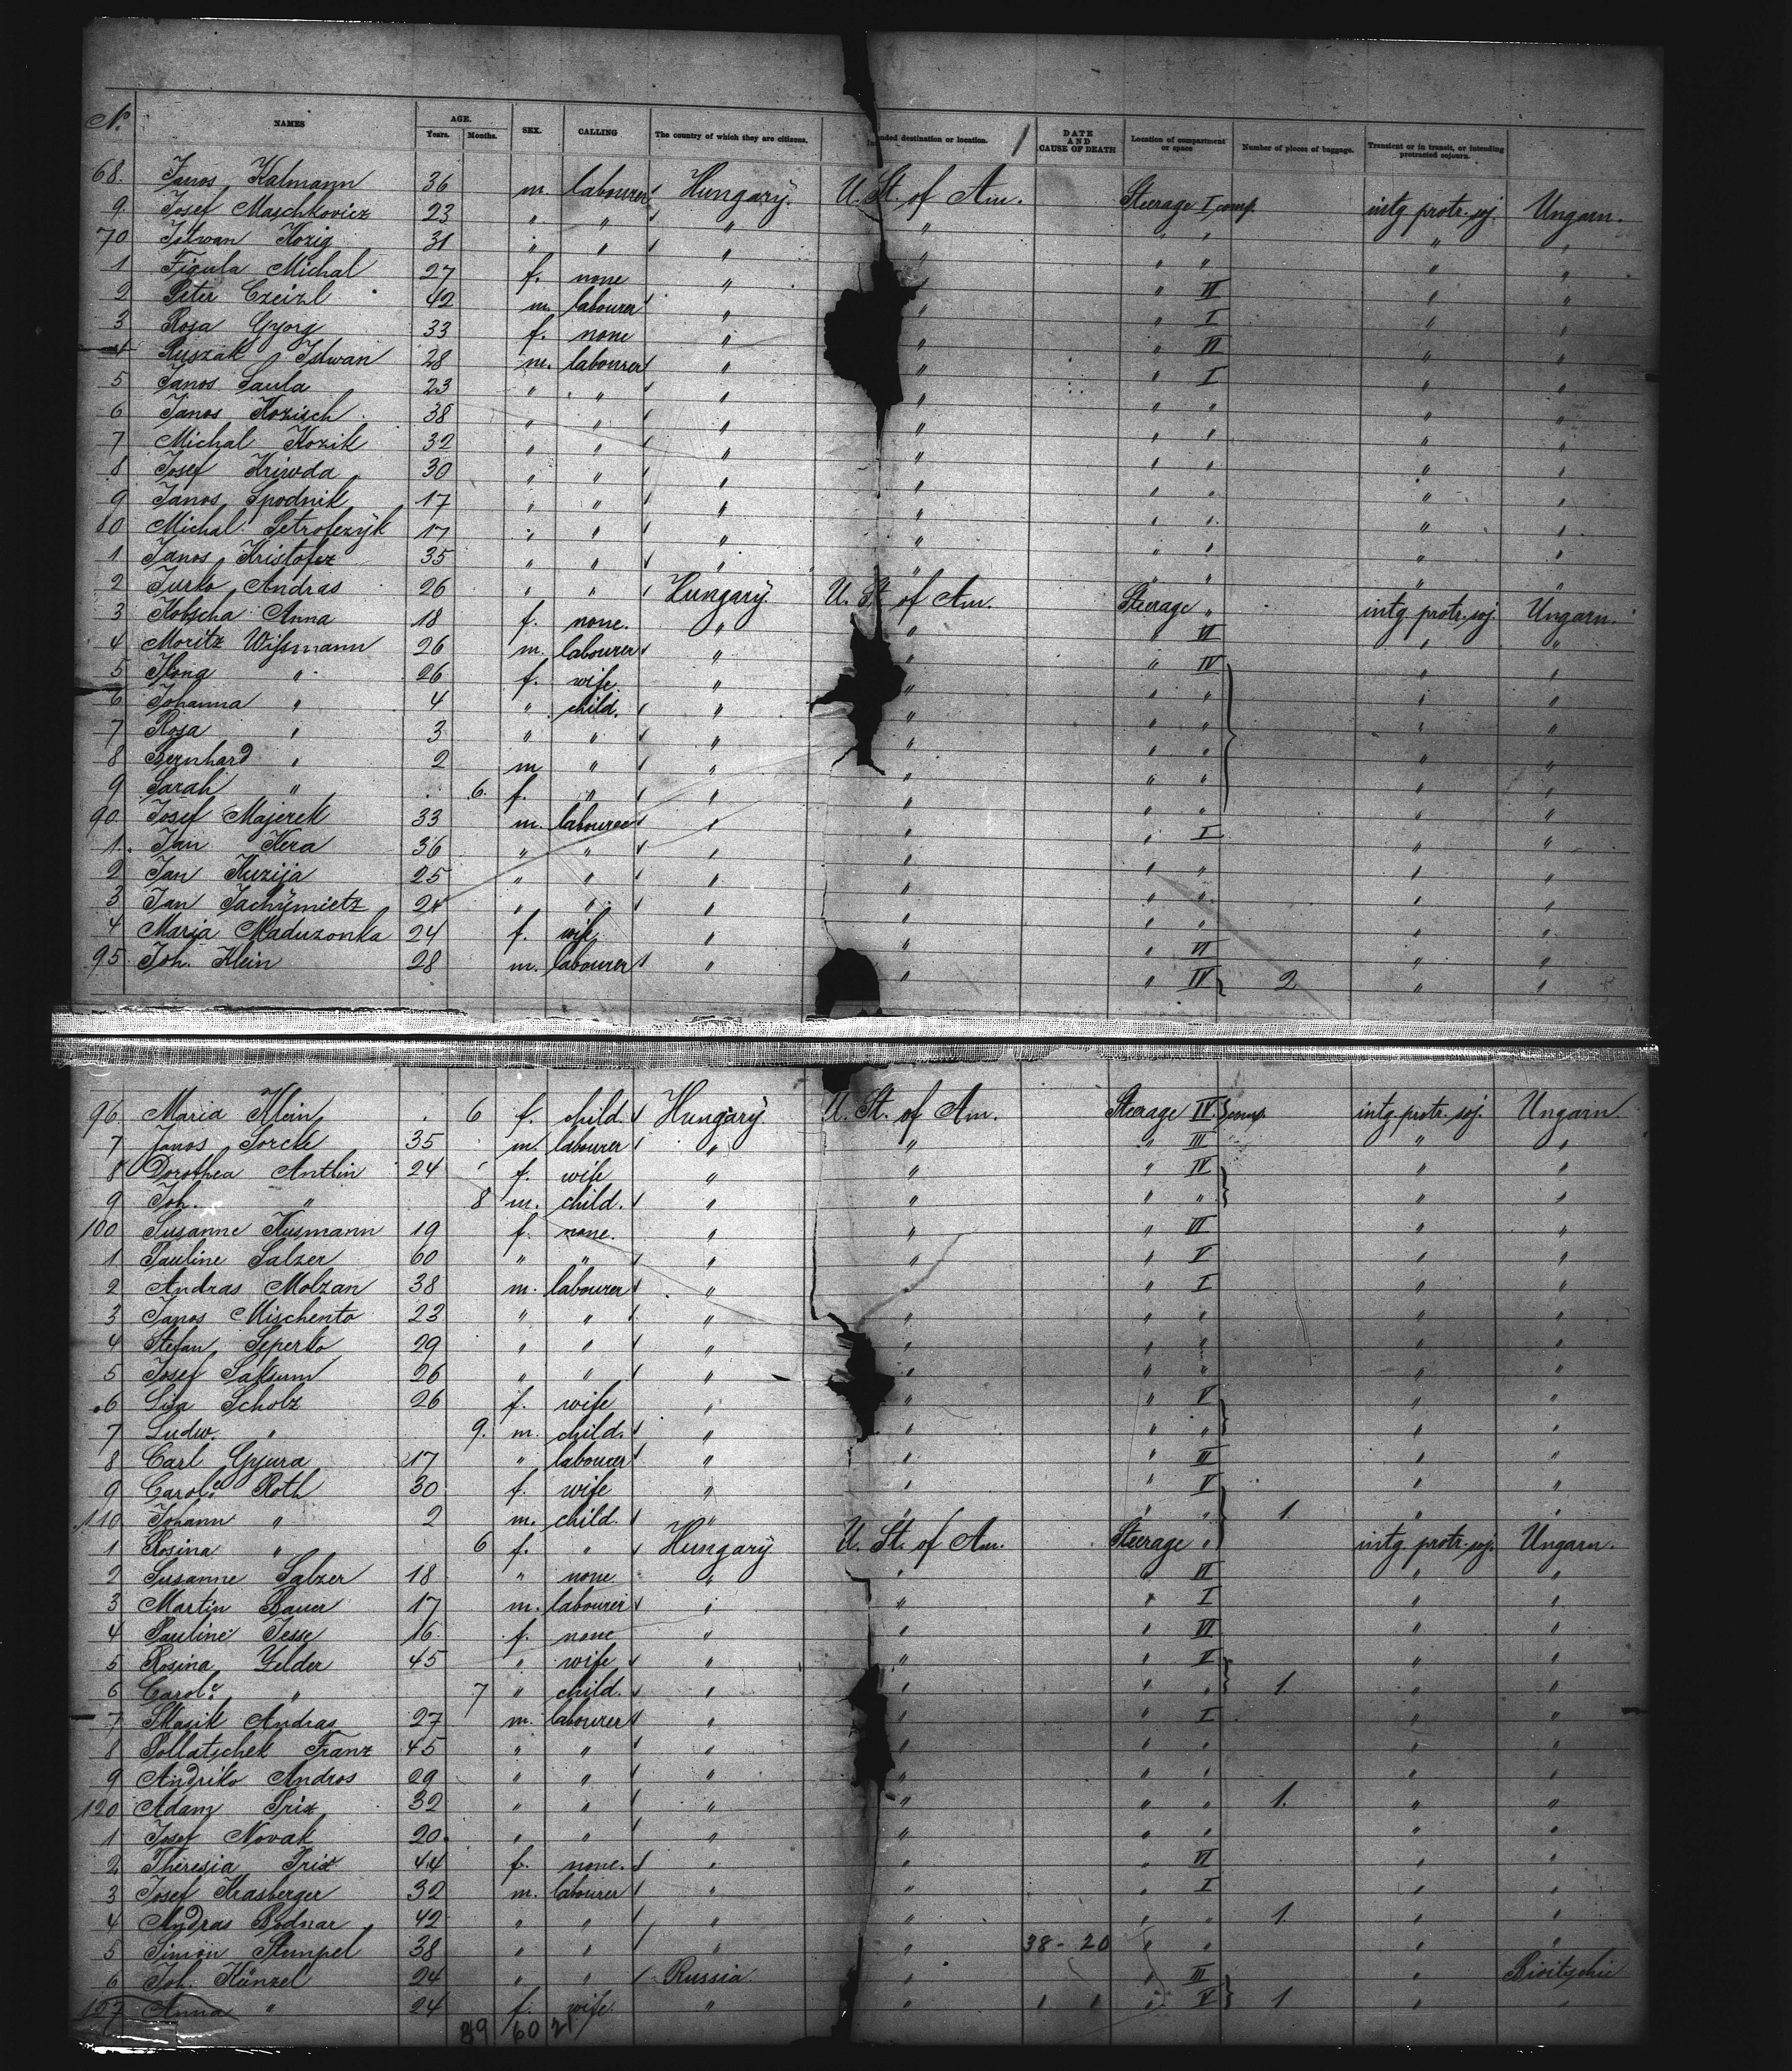 No. NAMES AGE. Years. Months. SEX. CALLING The country of which they are citizens. nded destination or location. DATE AND CAUSE OF DEATH Location of compartment or space Number of pieces of baggage. Transient or in transit, or intending protracted sojourn.
68. Janos Kalmann 36 m. labourer Hungary. U. St. of Am. Steerage I comp. intg. protr. soj. Ungarn.
9 Josef Maschkovicz 23 " " " " " " " "
70 Istwan Kozig 31 " " " " " " " "
1 Figula Michal 27 f. none " " " VI " "
2 Peter Czeizl 42 m. labourer " " " I " "
3 Rosa Gyorg 33 f. none " " " VI " "
4 Ruszak Istwan 28 m. labourer " " " I " "
5 Janos Saula 23 " " " " " " " "
6 Janos Kozisch 38 " " " " " " " "
7 Michal Kozik 32 " " " " " " " "
8 Josef Kriwda 30 " " " " " " " "
9 Janos Spodnik 17 " " " " " " " "
80 Michal Petrofczyk 17 " " " " " " " "
1 Janos Kristofez 35 " " " " " " " "
2 Jurko Andras 26 " " Hungary U. St. of Am. Steerage " intg. protr. soj. Ungarn.
3 Kobscha Anna 18 f. none. " " " VI " "
4 Moritz Wissmann 26 m. labourer " " " IV " "
5 Ilona " 26 f. wife " " " " " "
6 Johanna " 4 " child. " " " " " "
7 Rosa " 3 " " " " " " " "
8 Bernhard " 2 m " " " " " " "
9 Sarah " 6. f. " " " " " " "
90. Josef Majerek 33 m. labourer " " " I " "
1. Jan Kera 36 " " " " " " " "
2 Jan Kuzija 25 " " " " " " " "
3 Jan Jachymietz 24 " " " " " " " "
4 Maria Maduzonka 24 f. wife " " " VI " "
95. Joh. Klein 28 m. labourer " " " IV 2 " "
96. Maria Klein 6 f. child. Hungary. U. St. of Am. Steerage IV. comp intg. protr. soj. Ungarn.
7 Janos Sorcik 35 m. labourer " " " III " "
8 Dorothea Antlin 24 f. wife " " " IV " "
9 Joh. " 8 m. child. " " " " " "
100 Susanne Kusmann 19 f. none. " " " VI " "
1 Pauline Salzer 60 " " " " " V " "
2 Andras Molzan 38 m. labourer " " " I " "
3 Janos Mischento 23 " " " " " " " "
4 Stefan Seperko 29 " " " " " " " "
5 Josef Saksum 26 " " " " " " " "
6 Lisa Scholz 26 f. wife " " " V " "
7 Ludw. " 9. m. child. " " " " " "
8 Carl Gyura 17 " labourer " " " III " "
9 Carole Roth 30 f. wife " " " V " "
110 Johann " 2 m. child. " " " " 1. " "
1 Rosina " 6 f. " Hungary U. St. of Am. Steerage " intg. protr. soj. Ungarn.
2 Susanne Salzer 18 " none " " " VI " "
3 Martin Bauer 17 m. labourer " " " I " "
4 Pauline Jesse 16 f. none " " " VI " "
5 Rosina Zelder 45 " wife " " " V " "
6 Carole " 7 " child. " " " " 1. " "
7 Masik Andras 27 m. labourer " " " I " "
8 Pollatschek Franz 45 " " " " " " " "
9 Andriko Andros 29 " " " " " " " "
120 Adam Prix 32 " " " " " " 1. " "
1 Josef Novak 20 " " " " " " " "
2 Theresia Prix 44 f. none. " " " VI " "
3 Josef Krasberger 32 m. labourer " " " I " "
4 Andras Bodnar 42 " " " " " " 1 " "
5 Simon Stempel 38 " " " " 38-20 " " " "
6 Joh. Künzel 24 " " Russia " " III "
127 Anna " 24 f. wife " " " V 1 " "
89 60 21